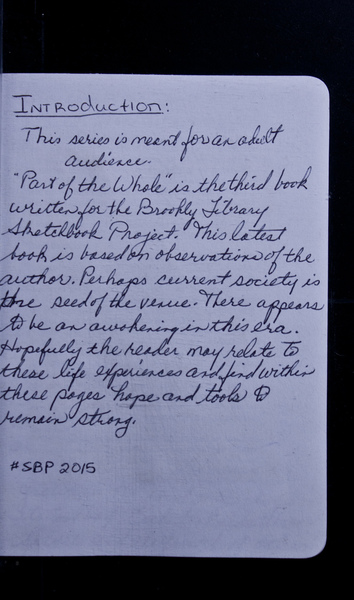 INTRODUCTION:
This series is meant for an adult
audience.
"Part of the Whole" is the third book
written for the Brookly Library
Sketchbook Project. This latest
book is based on observations of the
author. Perhaps current society is
the seed of the venue. There appears
to be an awakening in this era.
Hopefully the reader may relate to
these life experiences and find within
these pages hope and tools to
remain strong.
#SBP 2015